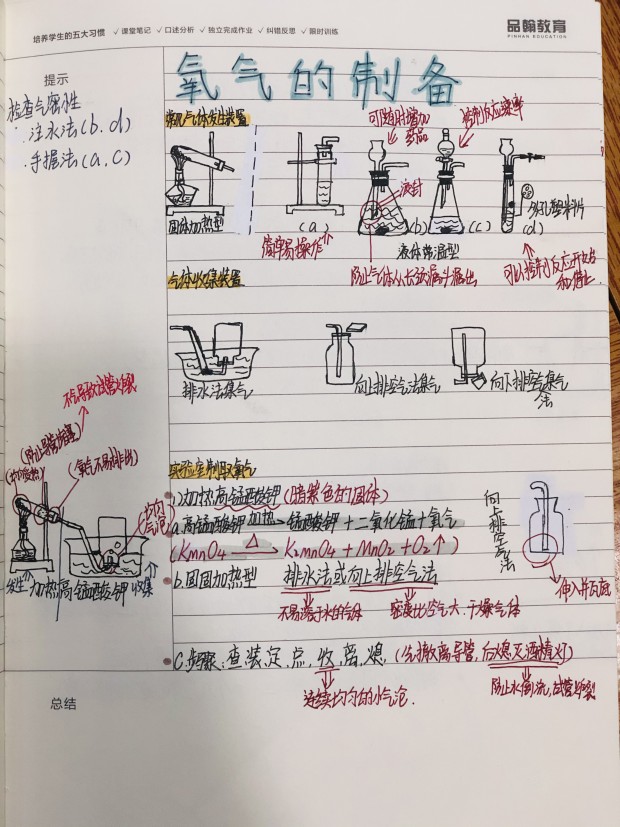 培养学生的五大习惯 ✓课堂笔记 ✓口述分析 ✓独立完成作业 ✓纠错反思 ✓限时训练
品翰教育
PINHAN EDUCATION
提示
检查气密性
注水法(b.d)
手握法(a,c)
氧气的制备
常见气体发生装置
可随时增加
药品
控制反应速率
液封
多孔塑料片
固体加热型
(a)
(b)
(c)
(d)
液体常温型
简单易操作
防止气体从长颈漏斗漏出
可以控制反应开始
和停止
气体收集装置
排水法集气
向上排空气法集气
向下排空气集气
法
实验室制取氧气
(1)加热高锰酸钾(暗紫色的固体)
a.高锰酸钾 加热 锰酸钾+二氧化锰+氧气
(KmnO4 △ K2mnO4 + MnO2 + O2↑)
b.固固加热型 排水法或向上排空气法
不易溶于水的气体
密度比空气大、干燥气体
C.步骤:查、装、定、点、收、离、熄.(先撤离导管,后熄灭酒精灯)
连续均匀的小气泡.
防止水倒流,试管炸裂
向上排空气法
伸入井瓦底
(均匀受热)
(氧气不易排出)
发生 加热高锰酸钾 收集
总结